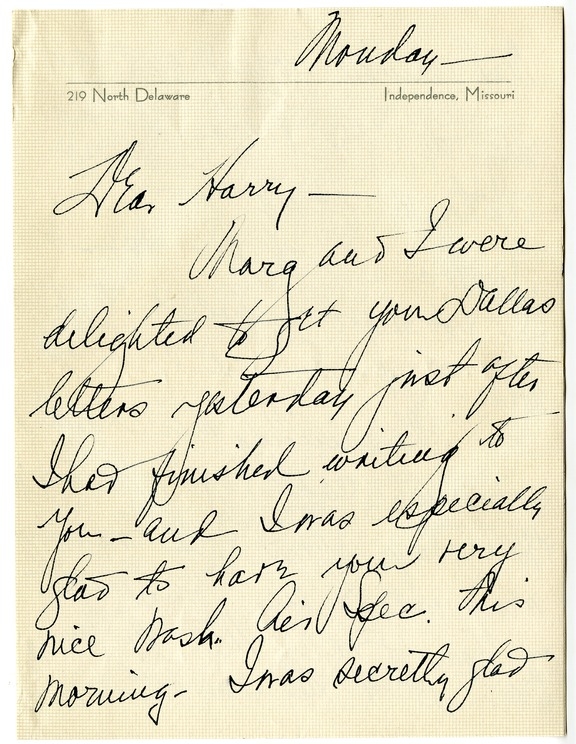 Monday—
219 North Delaware Independence, Missouri
Dear Harry—
Marg and I were
delighted to get your Dallas
letters yesterday just after
I had finished writing to
you – and I was especially
glad to have your very
nice Wash. Air Spec. this
morning – I was secretly glad